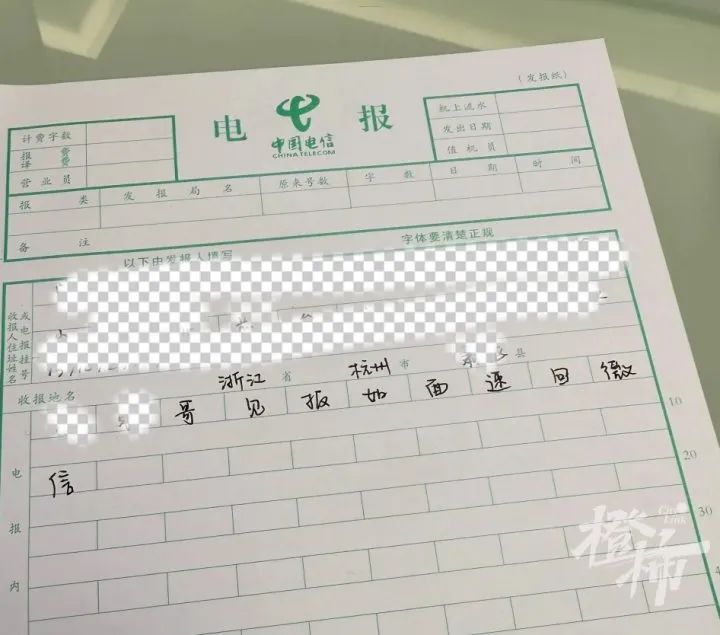 (发报纸)
电 报
中国电信
CHINA TELECOM
计费字数
报费
译费
营业员
机上流水
发出日期
值机员
报类 发报局名 原来号数 字数 日期 时间
备注
以下由发报人填写 字体要清楚正规
收报人住址姓名
或电报挂号
收报地名 浙江省 杭州市 县
哥见报如面速回微
10
信
20
30
4
电报内
橙柿
City Link